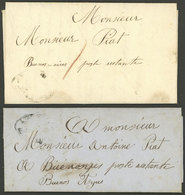 Monsieur
Monsieur Piat
Buenos-aires poste restante
A monsieur
Monsieur Antoine Piat
A poste restante
Buenos Ayres